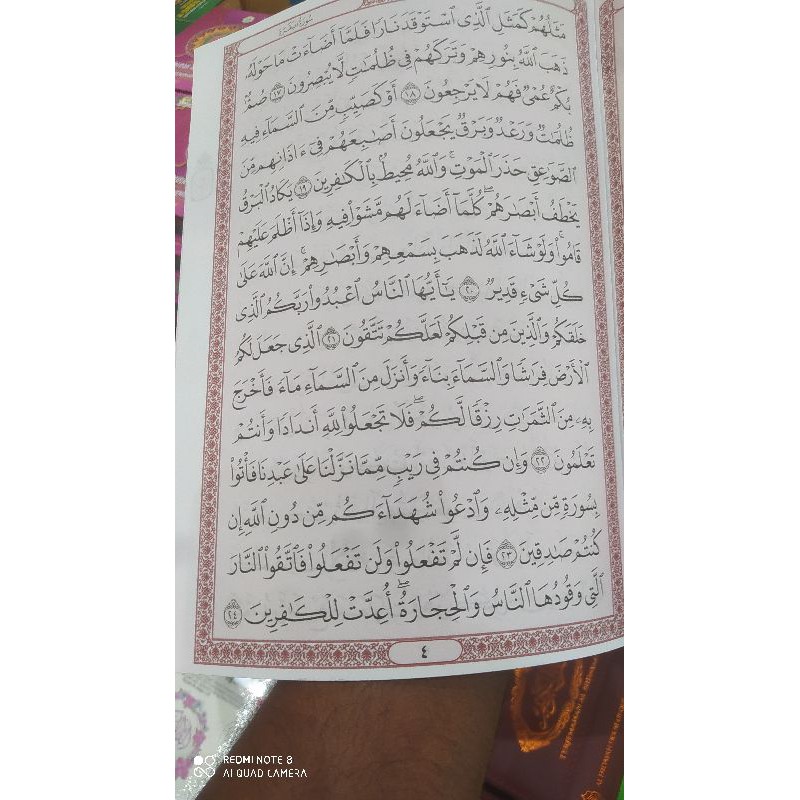 سُورَةُ البَقَرَةِ
مَثَلُهُمْ كَمَثَلِ ٱلَّذِى ٱسْتَوْقَدَ نَارًا فَلَمَّآ أَضَآءَتْ مَا حَوْلَهُۥ
ذَهَبَ ٱللَّهُ بِنُورِهِمْ وَتَرَكَهُمْ فِى ظُلُمَٰتٍ لَّا يُبْصِرُونَ ١٧ صُمٌّۢ
بُكْمٌ عُمْىٌ فَهُمْ لَا يَرْجِعُونَ ١٨ أَوْ كَصَيِّبٍ مِّنَ ٱلسَّمَآءِ فِيهِ
ظُلُمَٰتٌ وَرَعْدٌ وَبَرْقٌ يَجْعَلُونَ أَصَٰبِعَهُمْ فِىٓ ءَاذَانِهِم مِّنَ
ٱلصَّوَٰعِقِ حَذَرَ ٱلْمَوْتِ ۚ وَٱللَّهُ مُحِيطٌۢ بِٱلْكَٰفِرِينَ ١٩ يَكَادُ ٱلْبَرْقُ
يَخْطَفُ أَبْصَٰرَهُمْ ۖ كُلَّمَآ أَضَآءَ لَهُم مَّشَوْا۟ فِيهِ وَإِذَآ أَظْلَمَ عَلَيْهِمْ
قَامُوا۟ ۚ وَلَوْ شَآءَ ٱللَّهُ لَذَهَبَ بِسَمْعِهِمْ وَأَبْصَٰرِهِمْ ۚ إِنَّ ٱللَّهَ عَلَىٰ
كُلِّ شَىْءٍ قَدِيرٌ ٢٠ يَٰٓأَيُّهَا ٱلنَّاسُ ٱعْبُدُوا۟ رَبَّكُمُ ٱلَّذِى
خَلَقَكُمْ وَٱلَّذِينَ مِن قَبْلِكُمْ لَعَلَّكُمْ تَتَّقُونَ ٢١ ٱلَّذِى جَعَلَ لَكُمُ
ٱلْأَرْضَ فِرَٰشًا وَٱلسَّمَآءَ بِنَآءً وَأَنزَلَ مِنَ ٱلسَّمَآءِ مَآءً فَأَخْرَجَ
بِهِۦ مِنَ ٱلثَّمَرَٰتِ رِزْقًا لَّكُمْ ۖ فَلَا تَجْعَلُوا۟ لِلَّهِ أَندَادًا وَأَنتُمْ
تَعْلَمُونَ ٢٢ وَإِن كُنتُمْ فِى رَيْبٍ مِّمَّا نَزَّلْنَا عَلَىٰ عَبْدِنَا فَأْتُوا۟
بِسُورَةٍ مِّن مِّثْلِهِۦ وَٱدْعُوا۟ شُهَدَآءَكُم مِّن دُونِ ٱللَّهِ إِن
كُنتُمْ صَٰدِقِينَ ٢٣ فَإِن لَّمْ تَفْعَلُوا۟ وَلَن تَفْعَلُوا۟ فَٱتَّقُوا۟ ٱلنَّارَ
ٱلَّتِى وَقُودُهَا ٱلنَّاسُ وَٱلْحِجَارَةُ ۖ أُعِدَّتْ لِلْكَٰفِرِينَ ٢٤
٤
REDMI NOTE 8
AI QUAD CAMERA